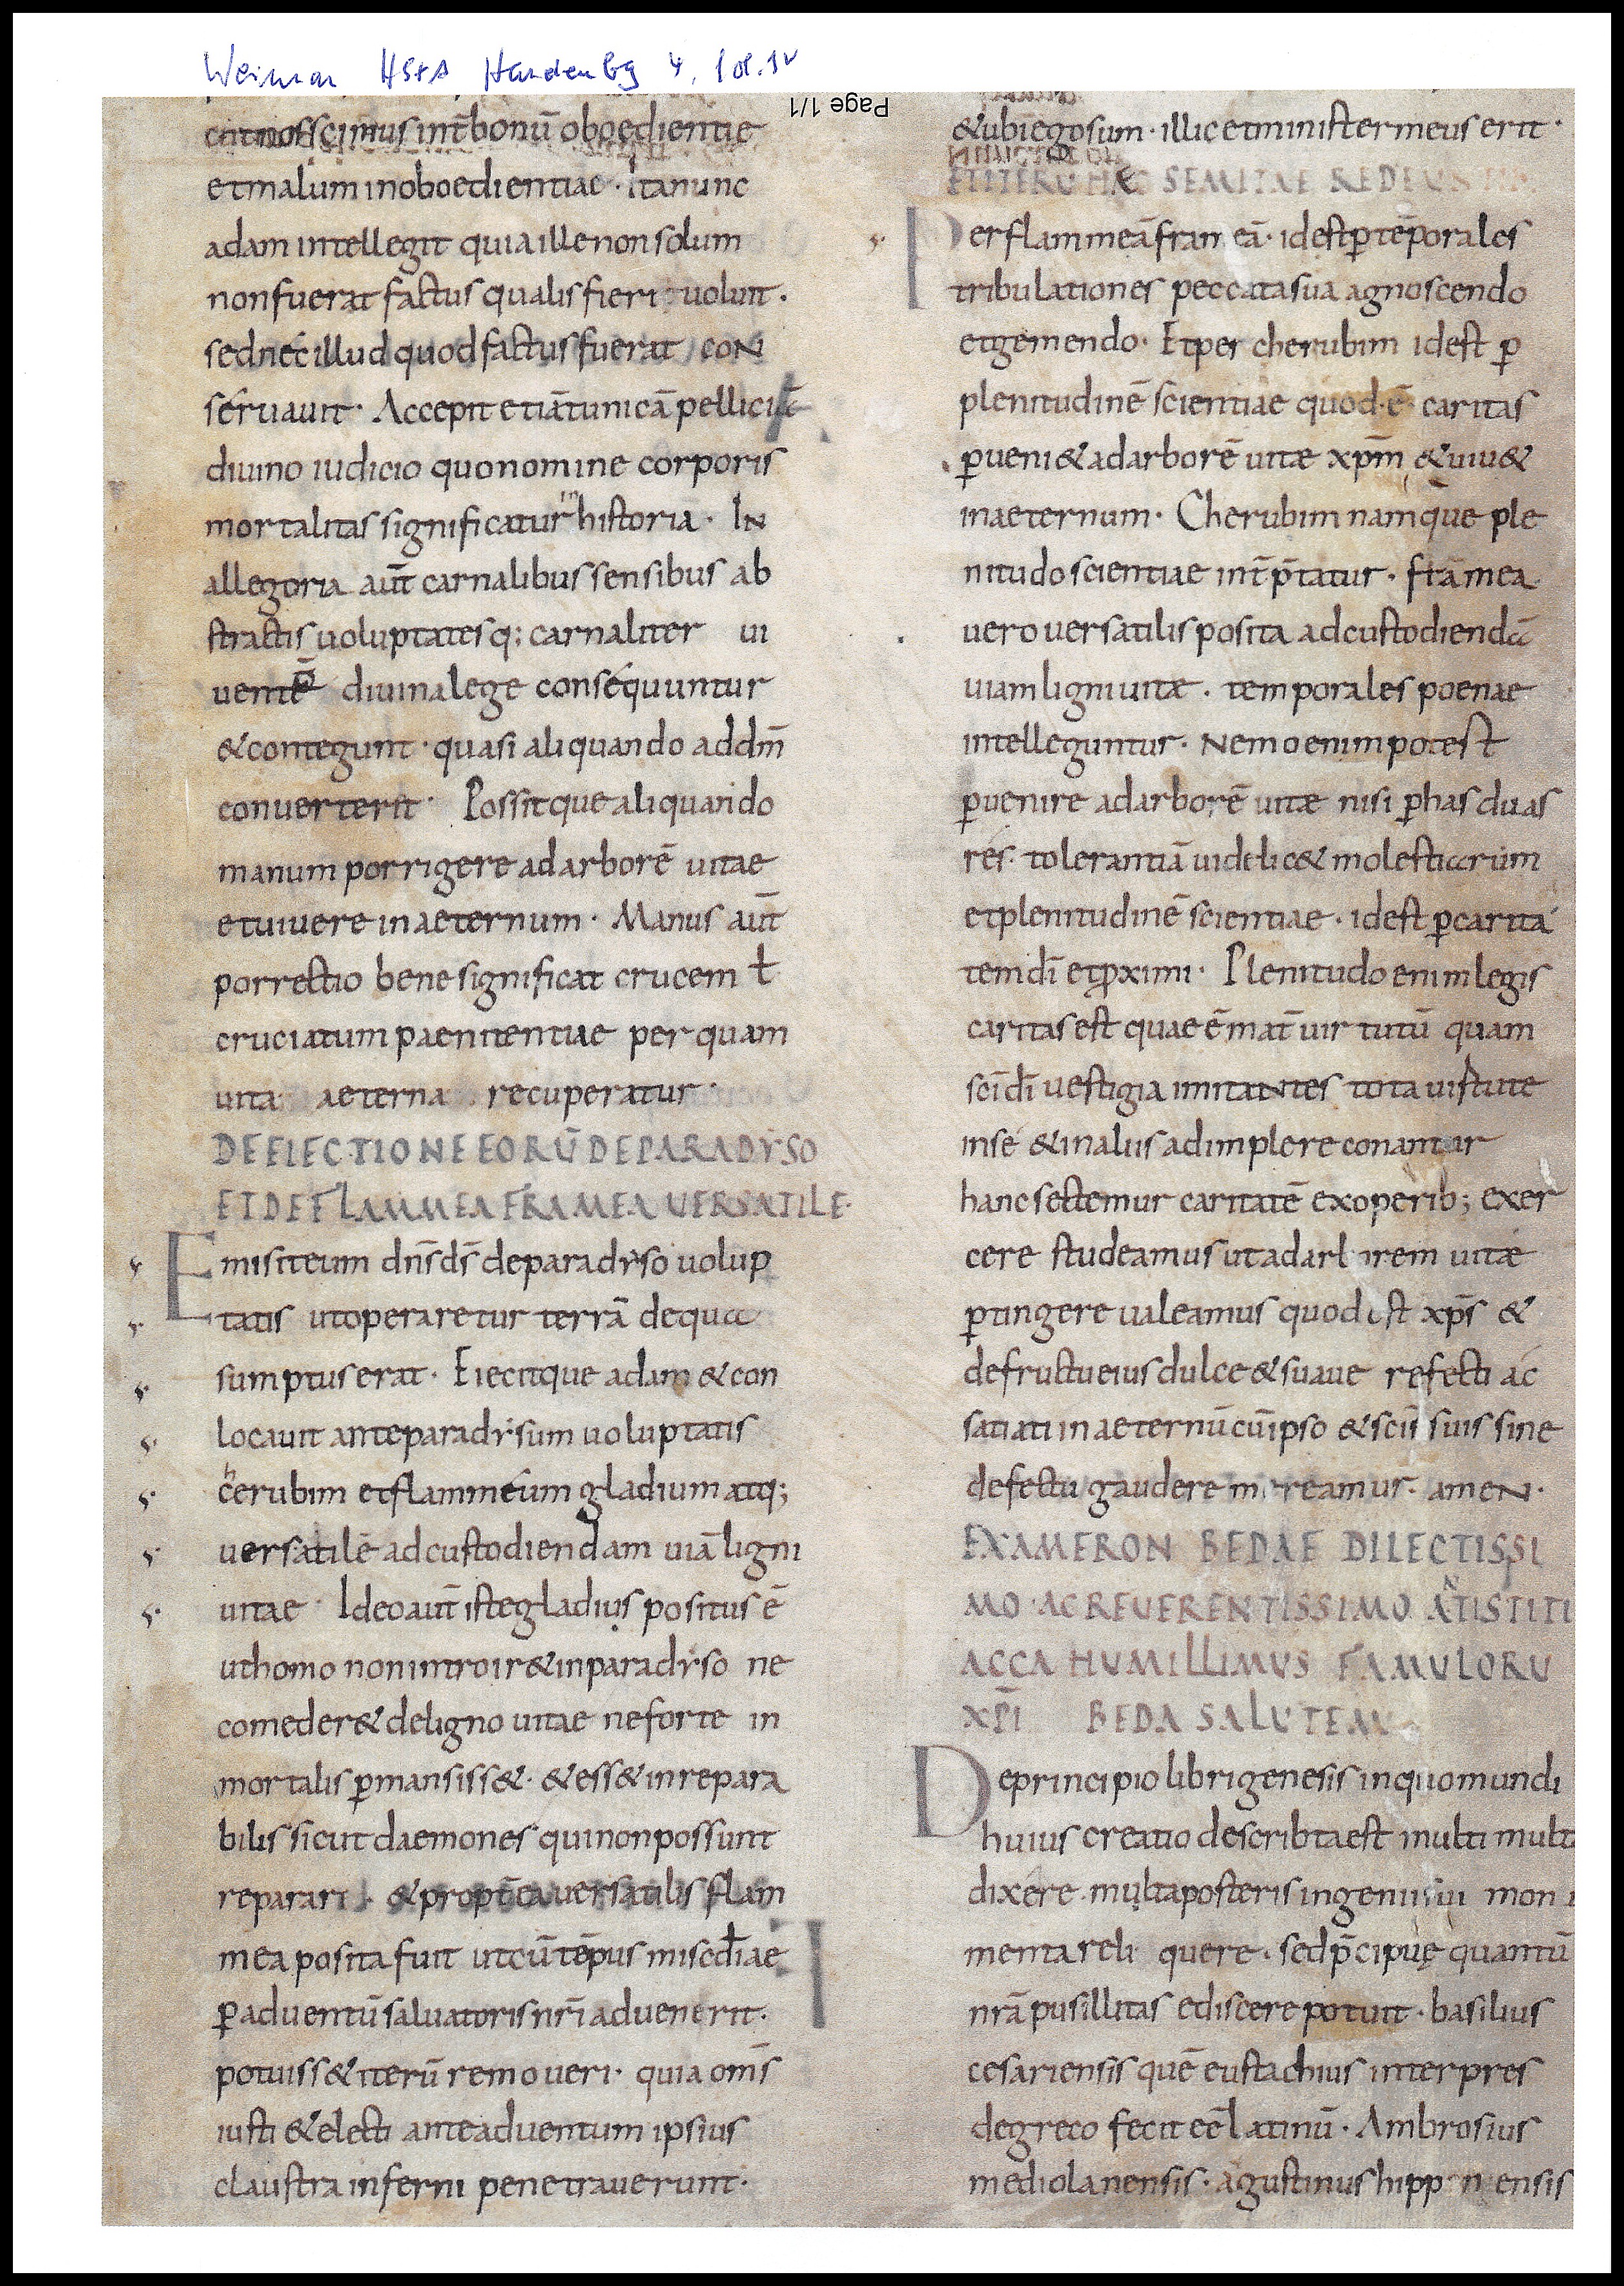 Weimar HStA Hardenbg 4, fol. 1v
Page 1/1
noscimus int̄ bonū oboedientie
et malum inoboedientiae · Ita nunc
adam intellegit quia ille non solum
non fuerat factus qualis fieri voluit ·
sed nec illud quod factus fuerat con
servavit · Accepit etiā tunicā pelliciā
divino iudicio quo nomine corporis
mortalitas significatur in historia · In
allegoria aut̄ carnalibus sensibus ab
stractis voluptates q; carnaliter vi
vente divina lege consequuntur
& contegunt · quasi aliquando ad dm̄
converterit · Possitque aliquando
manum porrigere ad arborē vitae
et vivere in aeternum · Manus aut̄
porrectio bene significat crucem ł
cruciatum paenitentiae per quam
vita aeterna recuperatur ·
DE EIECTIONE EORŪ DE PARADYSO
ET DE FLAMMEA FRAMEA VERSATILE ·
Emisit eum dn̄s ds̄ de paradyso volup
tatis ut operaretur terrā de qua
sumptus erat · Eiecitque adam & con
locavit ante paradysum voluptatis
cherubim et flammeum gladium atq;
versatilē ad custodiendam viā ligni
vitae · Ideo aut̄ iste gladius positus ē
ut homo non introir& in paradyso ne
comeder& de ligno vitae ne forte in
mortalis ꝑmansiss& · & ess& inrepara
bilis sicut daemones qui non possunt
reparari · & propt̄ea versatilis flam
mea posita fuit ut cū tēpus misc̄diae
ꝑ adventū salvatoris nr̄i advenerit ·
potuiss& iterū removeri · quia om̄s
iusti & electi ante adventum ipsius
claustra inferni penetraverunt ·
& ubi ego sum · illic et minister meus erit ·
SEMITAE
Per flammeā frameā · id est ꝑ tēporales
tribulationes peccata sua agnoscendo
et gemendo · Et per cherubim id est ꝑ
plenitudinē scientiae quod · ē · caritas
ꝑveni& ad arborē vitæ xp̄m & viv&
in aeternum · Cherubim namque ple
nitudo scientiae int̄p̄tatur · framea
vero versatilis posita ad custodiendā
viam ligni vitæ · temporales poenae
intelleguntur · Nemo enim potest
ꝑvenire ad arborē vitæ nisi ꝑ has duas
res · tolerantiā videlic& molestiarum
et plenitudinē scientiae · id est ꝑ carita
tem dī et ꝓximi · Plenitudo enim legis
caritas est quae ē mat̄ virtutū quam
sc̄i dī vestigia imitantes tota virtute
in se & in aliis adimplere conantur
hanc sectemur caritatē ex operib; exer
cere studeamus ut ad arborem vitæ
ꝑtingere valeamus quod est xp̄s &
de fructu eius dulce & suave refecti ac
satiati in aeternū cū ipso & sc̄is suis sine
defectu gaudere mereamur · amen ·
EXAMERON BEDAE DILECTISSI
MO AC REVERENTISSIMO ANTISTITI
ACCA HUMILLIMUS FAMULORU
XP̄I BEDA SALUTEM
De principio libri genesis in quo mundi
huius creatio describta est multi multa
dixere · multa posteris ingenii sui mon
menta reliquere · sed p̄cipuę quantū
nr̄a pusillitas ediscere potuit · basilius
cesariensis quē eustachius interpres
de greco fecit eē latinū · Ambrosius
mediolanensis · agustinus hipponensis